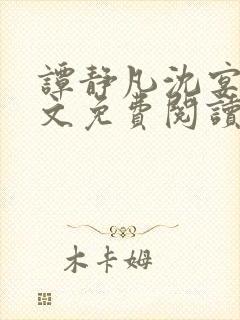 譚靜凡沈宴
文免費閱讀
木卡姆